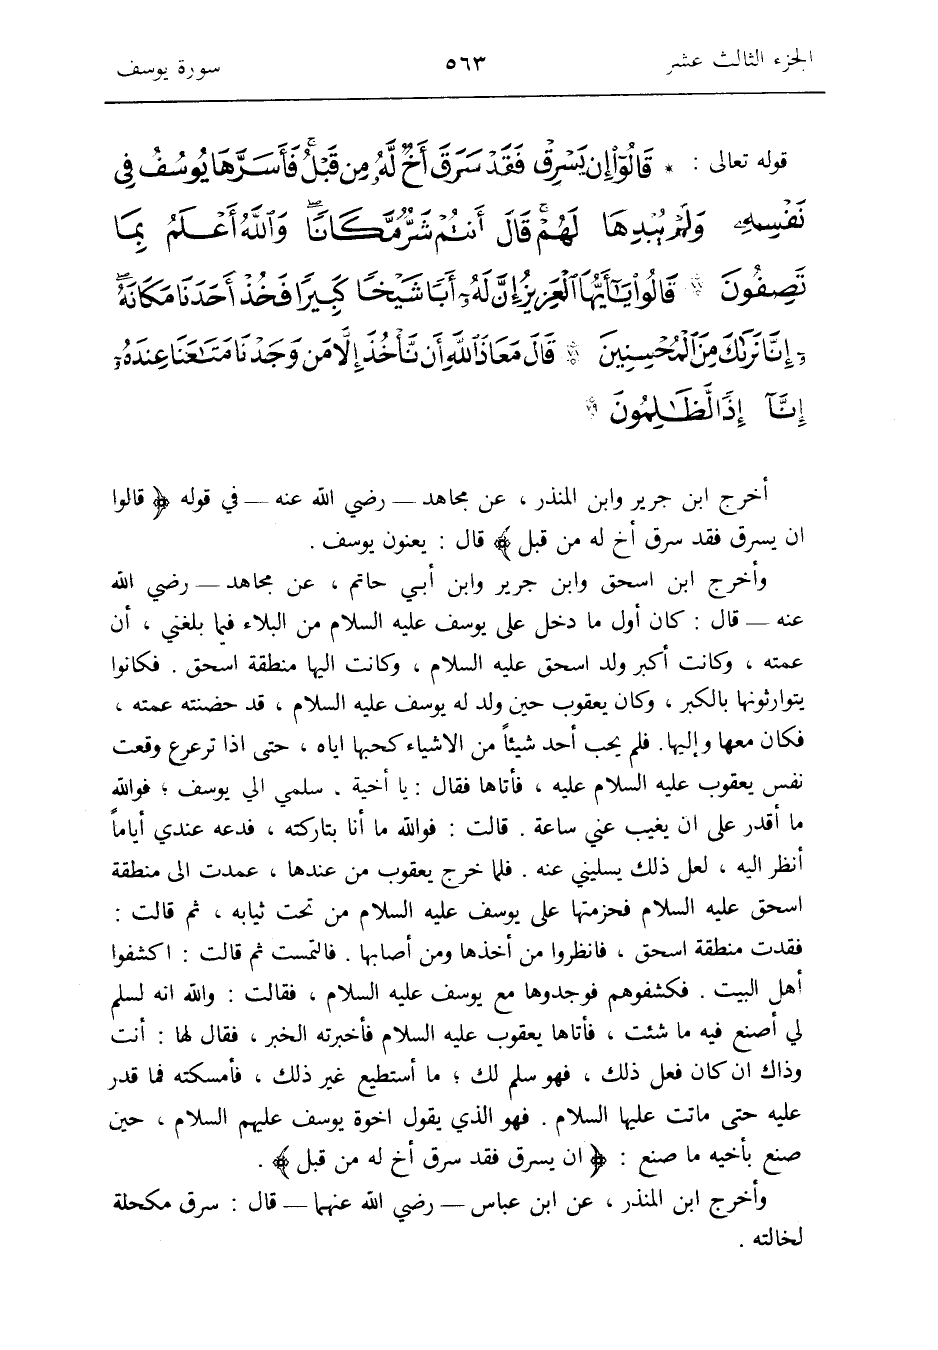 الجزء الثالث عشر ٥٦٣ سورة يوسف
قوله تعالى : * قَالُوٓاْ إِن يَسۡرِقۡ فَقَدۡ سَرَقَ أَخٌ لَّهُۥ مِن قَبۡلُۚ فَأَسَرَّهَا يُوسُفُ فِي
نَفۡسِهِۦ وَلَمۡ يُبۡدِهَا لَهُمۡۚ قَالَ أَنتُمۡ شَرٌّ مَّكَانًاۖ وَٱللَّهُ أَعۡلَمُ بِمَا
تَصِفُونَ ۝ قَالُواْ يَٰٓأَيُّهَا ٱلۡعَزِيزُ إِنَّ لَهُۥٓ أَبًا شَيۡخًا كَبِيرًا فَخُذۡ أَحَدَنَا مَكَانَهُ
ۥٓۖ إِنَّا نَرَىٰكَ مِنَ ٱلۡمُحۡسِنِينَ ۝ قَالَ مَعَاذَ ٱللَّهِ أَن نَّأۡخُذَ إِلَّا مَن وَجَدۡنَا مَتَٰعَنَا عِندَهُۥٓ
إِنَّآ إِذًا لَّظَٰلِمُونَ ٧٩
أخرج ابن جرير وابن المنذر ، عن مجاهد ــ رضي الله عنه ــ في قوله ﴿ قالوا
ان يسرق فقد سرق أخ له من قبل ﴾ قال : يعنون يوسف .
وأخرج ابن اسحق وابن جرير وابن أبي حاتم ، عن مجاهد ــ رضي الله
عنه ــ قال : كان أول ما دخل على يوسف عليه السلام من البلاء فيما بلغني ، أن
عمته ، وكانت أكبر ولد اسحق عليه السلام ، وكانت اليها منطقة اسحق . فكانوا
يتوارثونها بالكبر ، وكان يعقوب حين ولد له يوسف عليه السلام ، قد حضنته عمته ،
فكان معها وإليها. فلم يحب أحد شيئاً من الاشياء كحبها اياه ، حتى اذا ترعرع وقعت
نفس يعقوب عليه السلام عليه ، فأتاها فقال : يا أخية . سلمي الي يوسف ؛ فوالله
ما أقدر على ان يغيب عني ساعة . قالت : فوالله ما أنا بتاركته ، فدعه عندي أياماً
أنظر اليه ، لعل ذلك يسليني عنه . فلما خرج يعقوب من عندها ، عمدت الى منطقة
اسحق عليه السلام فحزمتها على يوسف عليه السلام من تحت ثيابه ، ثم قالت :
فقدت منطقة اسحق ، فانظروا من أخذها ومن أصابها . فالتمست ثم قالت : اكشفوا
أهل البيت . فكشفوهم فوجدوها مع يوسف عليه السلام ، فقالت : والله انه لسلم
لي أصنع فيه ما شئت ، فأتاها يعقوب عليه السلام فأخبرته الخبر ، فقال لها : أنت
وذاك ان كان فعل ذلك ، فهو سلم لك ؛ ما أستطيع غير ذلك ، فأمسكته فما قدر
عليه حتى ماتت عليها السلام . فهو الذي يقول اخوة يوسف عليهم السلام ، حين
صنع بأخيه ما صنع : ﴿ ان يسرق فقد سرق أخ له من قبل ﴾ .
وأخرج ابن المنذر ، عن ابن عباس ــ رضي الله عنهما ــ قال : سرق مكحلة
لخالته .